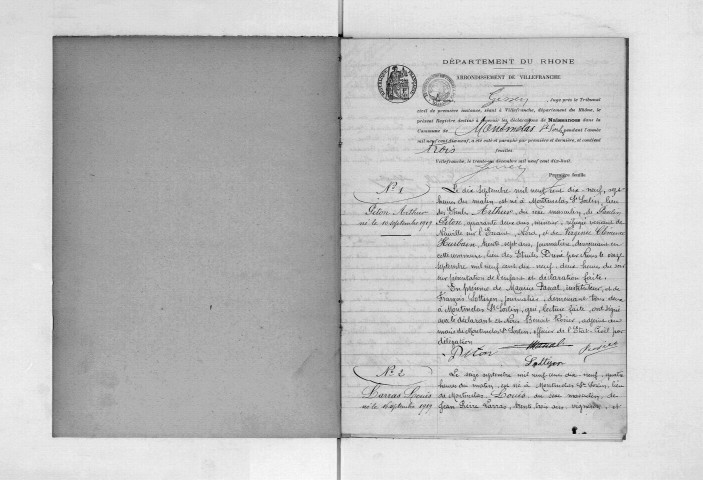 DÉPARTEMENT DU RHONE
ARRONDISSEMENT DE VILLEFRANCHE
Juge près le Tribunal
civil de première instance, séant à Villefranche, département du Rhône, le
présent Registre destiné à recevoir les déclarations de Naissances dans la
Commune de Montmelas St Sorlin pendant l'année
mil neuf cent dix-neuf, a été coté et paraphé par première et dernière, et contient
trois feuillets
Villefranche, le trente-un décembre mil neuf cent dix-huit
Première feuille
N° 1
Péton Arthur
né le 10 septembre 1919
Le dix septembre mil neuf cent dix-neuf, sept
heures du matin est né à Montmelas St Sorlin, lieu
Arthur, du sexe masculin, de
Péton, quarante deux ans, mineur, réfugié venant de
Neuville sur l'Escaut, Nord, et de Virginie Clémence
trente sept ans, journalière demeurant en
cette commune, lieu des Dressé par Nous le onze
septembre mil neuf cent dix neuf, deux heures du soir
sur présentation de l'enfant et déclaration faite.
En présence de Maurice instituteur, et de
François Lottizon, journalier, demeurant tous deux
à Montmelas St Sorlin, qui, lecture faite, ont signé
avec le déclarant et Nous Benoit adjoint au
maire de Montmelas St Sorlin, officier de l'Etat-Civil par
délégation
Péton
Lottizon
N° 2
Larras Louis
né le 16 septembre 1919
Le seize septembre mil neuf cent dix-neuf, quatre
heures du matin, est né à Montmelas St Sorlin, lieu
de Montmelas, Louis, du sexe masculin, de
Jean Pierre Larras, trente trois ans, vigneron, et